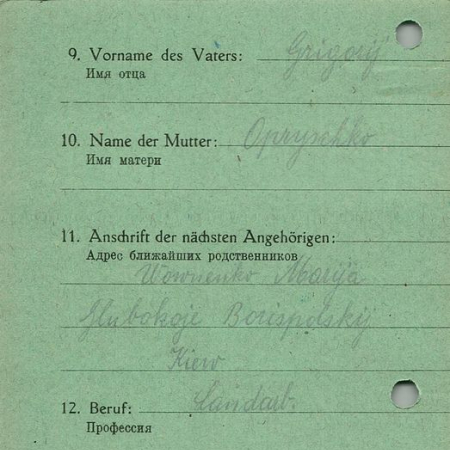 9. Vorname des Vaters: Grigorij
Имя отца
10. Name der Mutter: Opryschko
Имя матери
11. Anschrift der nächsten Angehörigen:
Адрес ближайших родственников
Wownenko Marija
Glubokoje Borispolskij
Kiew
12. Beruf: Landarb.
Профессия